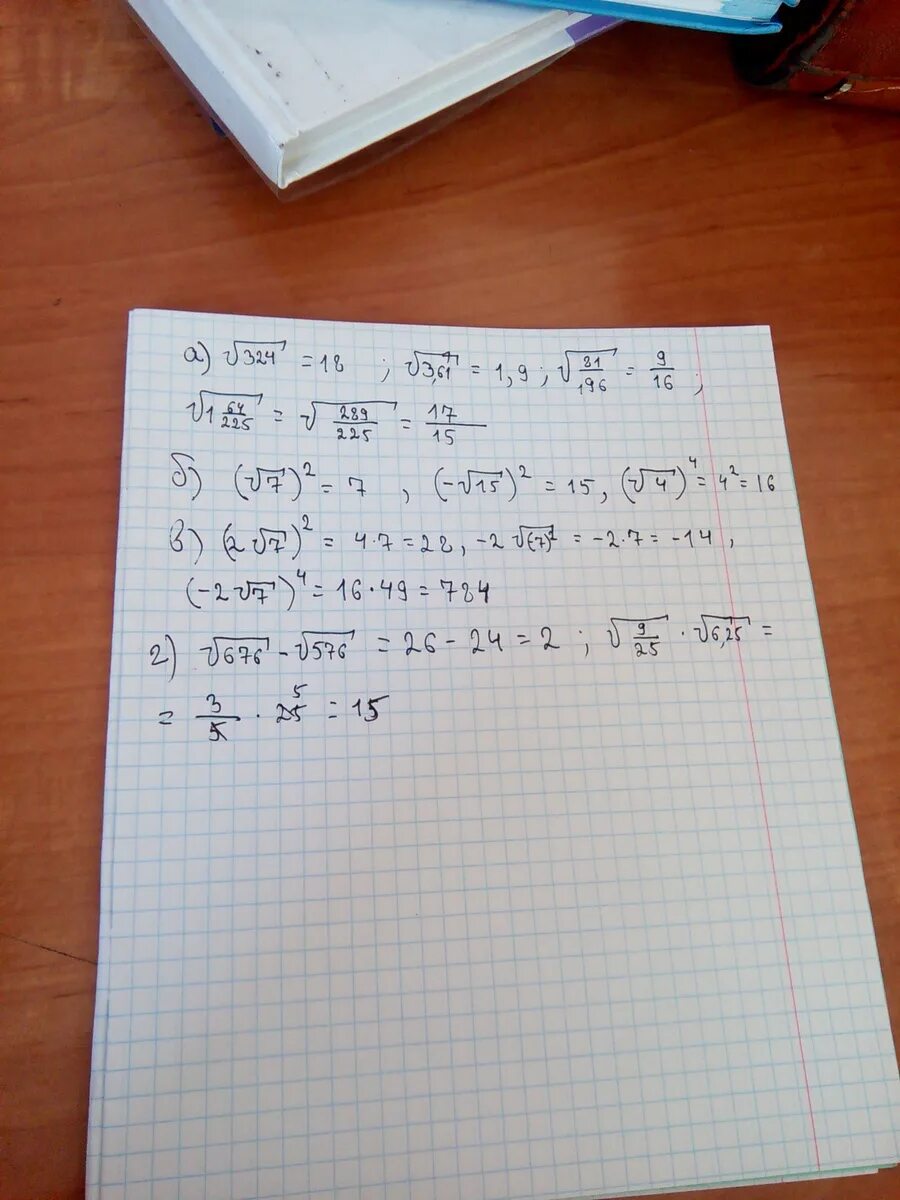 а) √324 = 18 ; √3,61 = 1,9 ; √(81/196) = 9/16 ;
√(1 64/225) = √(289/225) = 17/15
б) (√7)² = 7 , (-√15)² = 15, (√4)⁴ = 4² = 16
в) (2√7)² = 4·7 = 28, -2√(-7)² = -2·7 = -14 ,
(-2√7)⁴ = 16·49 = 784
г) √676 - √576 = 26 - 24 = 2 ; √(9/25) · √6,25 =
= 3/5 · 25 5 = 15